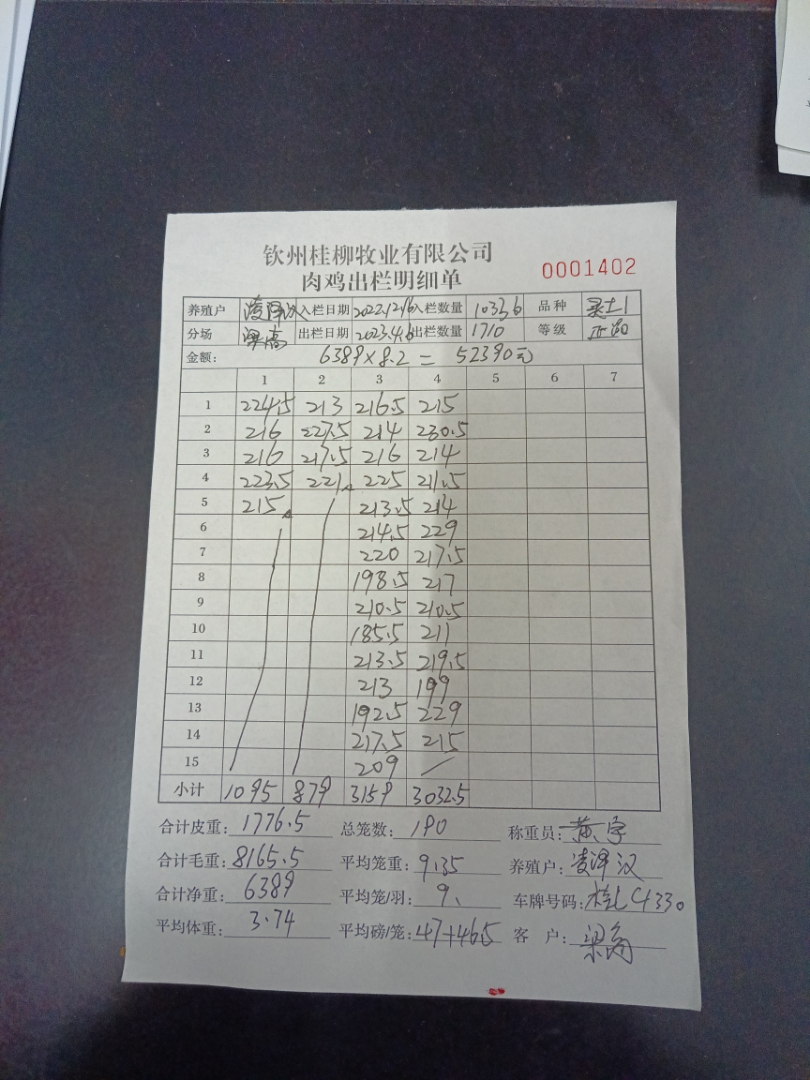 钦州桂柳牧业有限公司
肉鸡出栏明细单
0001402
养殖户 凌泽汉 入栏日期 2022.12.16 入栏数量 10336 品种 灵土1
分场 出栏日期 2023.4.6 出栏数量 1710 等级 正品
金额: 6389×8.2 = 52390元
1 2 3 4 5 6 7
1 224.5 213 216.5 215
2 216 227.5 214 230.5
3 216 217.5 216 214
4 223.5 221 225 211.5
5 215 213.5 214
6 214.5 229
7 220 217.5
8 198.5 217
9 210.5 210.5
10 185.5 211
11 213.5 219.5
12 213 199
13 192.5 229
14 217.5 215
15 209
小计 1095 879 3159 3032.5
合计皮重: 1776.5 总笼数: 190 称重员: 黄宇
合计毛重: 8165.5 平均笼重: 9.35 养殖户: 凌泽汉
合计净重: 6389 平均笼/羽: 9. 车牌号码: 桂L C4330
平均体重: 3.74 平均磅/笼: 47+46.5 客 户: 梁高